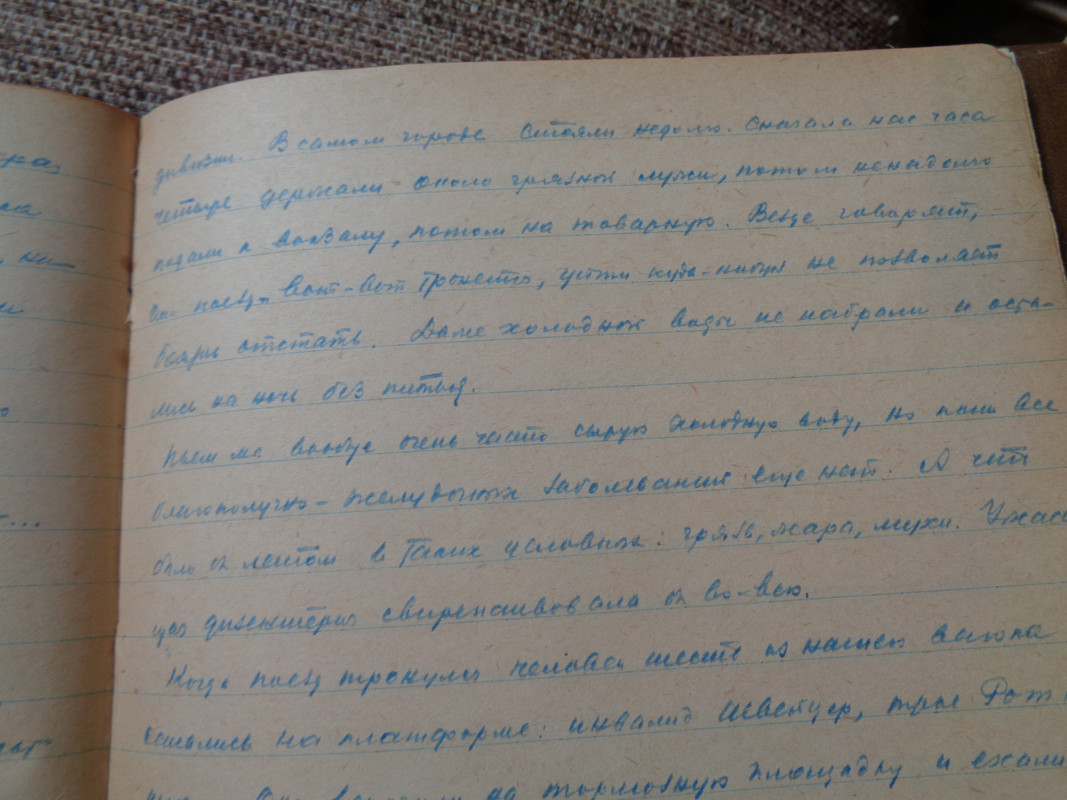 дивизии. В самом городе стояли недолго. Сначала нас часа
четыре держали около грязной лужи, потом ненадолго
подали к вокзалу, потом на товарную. Везде говорят,
что поезд вот-вот тронется, уйти куда-нибудь не позволяет
боязнь отстать. Даже холодной воды не набрали и оста-
лись на ночь без питья.
Пьем мы вообще очень часто сырую холодную воду, но пока все
благополучно - желудочных заболеваний еще нет. А что
было бы летом в таких условиях: грязь, жара, мухи. Ужасаю
щая дизентерия свирепствовала бы во-всю.
Когда поезд тронулся человек шесть из нашего вагона
остались на платформе: инвалид Швейцер, трое Рот
на тормозную площадку и ехали
ка,
на
...